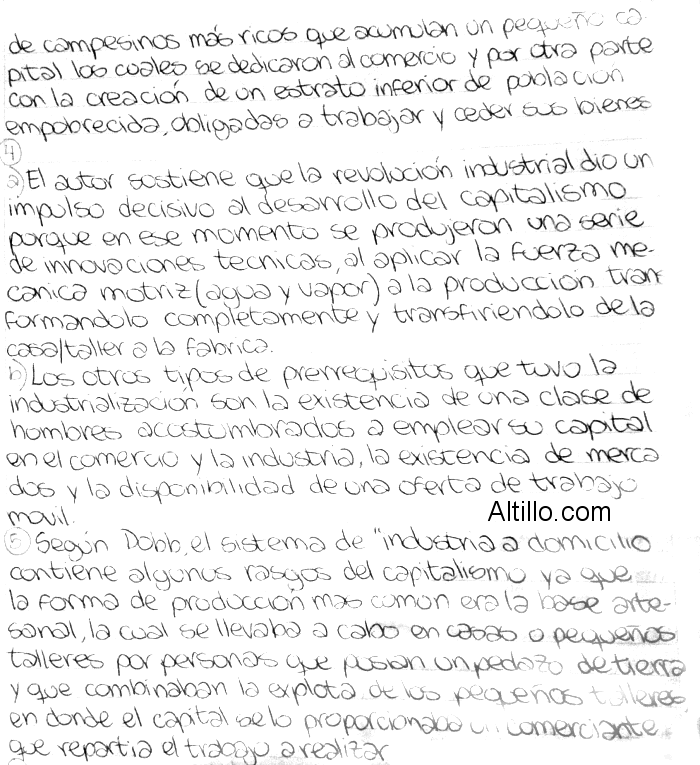 de campesinos más ricos que acumulan un pequeño ca-
pital los cuales se dedicaron al comercio y por otra parte
con la creación de un estrato inferior de población
empobrecida, obligadas a trabajar y ceder sus bienes
4
a) El autor sostiene que la revolución industrial dio un
impulso decisivo al desarrollo del capitalismo
porque en ese momento se produjeron una serie
de innovaciones tecnicas, al aplicar la fuerza me-
canica motriz (agua y vapor) a la produccion tran
formandolo completamente y transfiriendolo de la
casa/taller a la fabrica.
b) Los otros tipos de prerrequisitos que tuvo la
industrializacion son la existencia de una clase de
hombres acostumbrados a emplear su capital
en el comercio y la industria, la existencia de merca
dos y la disponibilidad de una oferta de trabajo
movil.
Altillo.com
5 Según Dobb, el sistema de "industria a domicilio
contiene algunos rasgos del capitalismo ya que
la forma de producción mas comun era la base arte-
sanal, la cual se llevaba a cabo en casas o pequeños
talleres por personas que pusian un pedazo de tierra
y que combinaban la explota de los pequeños talleres
en donde el capital se lo proporcionaba un comerciante
que repartia el trabajo a realizar